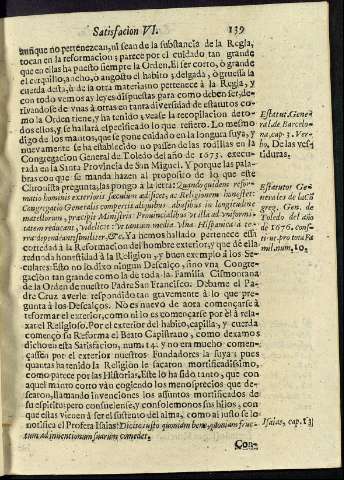 Satisfacion VI. 139
aunque no pertenezcan, ni sean de la substancia de la Regla,
tocan en la reformacion; parece por el cuidado tan grande
que en ellas ha puesto siempre la Orden. El ser corto, ò grande
el capillo, ancho, ò angosto el habito; delgada, ò gruessa la
cuerda desta, ù de la otra materia; no pertenece à la Regla, y
con todo vemos ay leyes dispuestas para como deben ser, de-
rivandose de vnas à otras en tanta diversidad de estatutos co-
mo la Orden tiene, y ha tenido; vease la recopilacion de to-
dos ellos, y se hallarà especificado lo que refiero. Lo mesmo
digo de los mantos, que se pone cuidado en la longura suya, y
nuevamente se ha establecido no passen de las rodillas en la
Congregacion General de Toledo del año de 1673. execu-
tada en la Santa Provincia de San Miguel. Y porque las pala-
bras con que se manda hazen al proposito de lo que este
Chronista pregunta, las pongo à la letra: Quandoquidem refor-
matio hominis exterioris sæculum ædificet, ac Religionem honestet:
Congregatio Generalis compertis aliquibus abusibus in longitudine
mantellorum, præcipit Ministris Provincialibus vt illa ad vniformi-
tatem reducant, videlicet: vt tantum media vlna Hispanica à te-
rra dependeant similiter, &c. Ya hemos hallado pertenece esta
cortedad à la Reformacion del hombre exterior, y que dè ella
redunda honestidad à la Religion, y buen exemplo à los Se-
culares: Esto no lo dixo ningun Descalço, sino vna Congre-
gacion tan grande como la de toda la Familia Cismontana
de la Orden de nuestro Padre San Francisco. Debame el Pa-
dre Cruz averle respondido tan gravemente à lo que pre-
gunta à los Descalços. No es nuevo de aora començarse à
reformar el exterior, como ni lo es començarse por èl à rela-
xar el Religioso. Por el exterior del habito, capilla, y cuerda
començò su Reforma el Beato Capistrano, como dexamos
dicho en esta Satisfacion, num. 14. y no era mucho comen-
çassen por el exterior nuestros Fundadores la suya; pues
quantas ha tenido la Religion se sacaron mortificadissimos,
como parece por las Historias. Este lo ha sido tanto, que con
aquel manto corto vàn cogiendo los menosprecios que de-
searon, llamando invenciones los assuntos mortificados de
su espiritu; pero consuelense, y consolemonos sus hijos, con
que estas vienen à ser el sustento del alma, como al justo se lo
notifica el Profeta Isaias: Dicite iusto quoniam bene, quoniam fruc-
tum adinventionum suarum comedet.
Con-
Estatut. Gene
ral. de Barcelo-
na, cap. 3. Ver-
bo, De las ves-
tiduras.
Estatutos Ge-
nerales de la Cõ
greg. Gen. de
Toledo del año
de 1676. cons-
titut. pro tota Fa
mil. num. 10.
Isaias, cap. 13